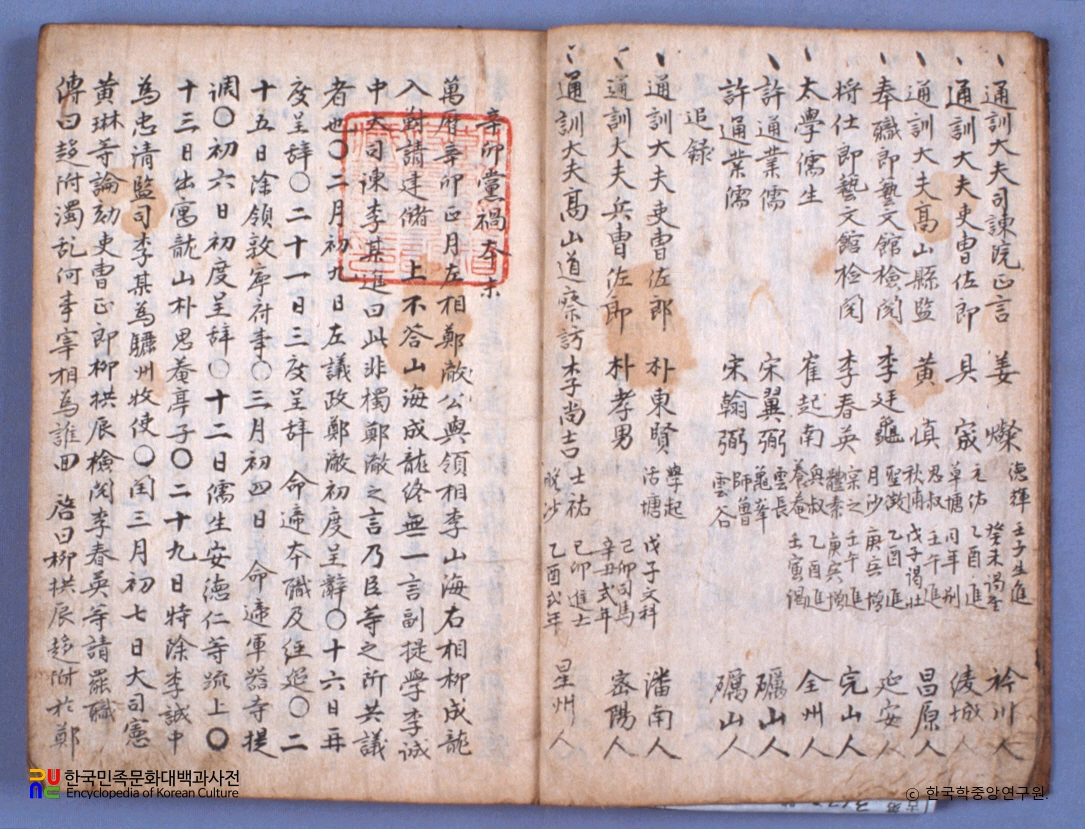 通訓大夫司諫院正言 姜燦 德輝 壬子生進 癸未謁聖 衿川人
通訓大夫吏曹佐郎 具宬 元佑 草塘 乙酉進 同年別 綾城人
通訓大夫高山縣監 黃愼 思叔 秋浦 壬午進 戊子謁壯 昌原人
奉職郎藝文館檢閱 李廷龜 聖徵 月沙 乙酉進 庚寅增 延安人
將仕郎藝文館檢閱 李春英 實之 體素 壬午進 庚寅增 完山人
太學儒生 崔起南 與叔 養菴 乙酉進 壬寅謁 全州人
許通業儒 宋翼弼 雲長 龜峯 礪山人
許通業儒 宋翰弼 師魯 雲谷 礪山人
追錄
通訓大夫吏曹佐郎 朴東賢 學起 活塘 戊子文科 潘南人
通訓大夫兵曹佐郎 朴孝男 己卯司馬 辛丑式年 密陽人
通訓大夫高山道察訪 李尚吉 士祐 晩沙 己卯進士 乙酉式年 星州人
辛卯黨禍本末
萬曆辛卯正月左相鄭澈公與領相李山海右相柳成龍
入對請建儲 上不答山海成龍終無一言副提學李誠
中大司諫李某進曰此非獨鄭澈之言乃臣等之所共議
者也〇二月初九日左議政鄭澈初度呈辭〇十六日再
度呈辞〇二十一日三度呈辞 命遞本職及經筵〇二
十五日除領敦寧府事〇三月初四日 命遞軍器寺提
調〇初六日初度呈辞〇十二日儒生安德仁等疏上〇
十三日出寓龍山朴思菴亭子〇二十九日特除李誠中
為忠清監司李某為驪州牧使〇閏三月初七日大司憲
黃琳等論劾吏曹正郎柳拱辰檢閱李春英等請罷職
傳曰趍附濁乱何事宰相為誰回 啓曰柳拱辰趍附於鄭
한국민족문화대백과사전
Encyclopedia of Korean Culture
ⓒ 한국학중앙연구원.